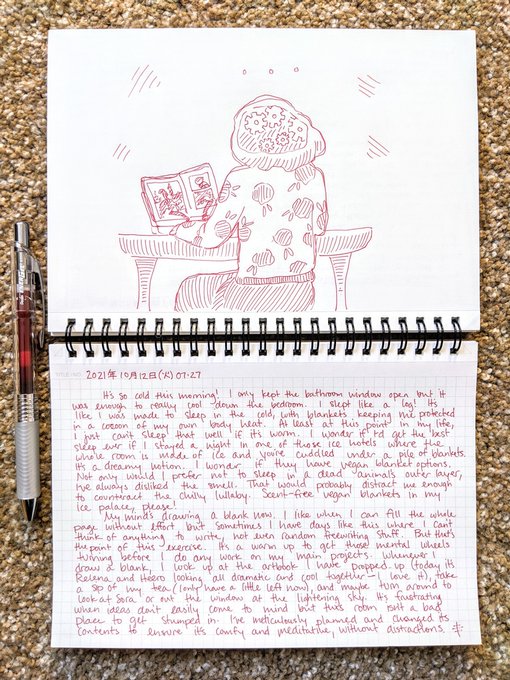 2021年10月12日(火) 07:27
It's so cold this morning! I only kept the bathroom window open but it
was enough to really cool down the bedroom. I slept like a log! It's
like I was made to sleep in the cold, with blankets keeping me protected
in a cocoon of my own body heat. At least at this point in my life,
I just can't sleep that well if it's warm. I wonder if I'd get the best
sleep ever if I stayed a night in one of those ice hotels where the
whole room is made of ice and you're cuddled under a pile of blankets.
It's a dreamy notion. I wonder if they have vegan blanket options.
Not only would I prefer not to sleep in a dead animal's outer layer,
I've always disliked the smell. That would probably distract me enough
to counteract the chilly lullaby. Scent-free vegan blankets in my
ice palace, please!
My mind's drawing a blank now. I like when I can fill the whole
page without effort but sometimes I have days like this where I can't
think of anything to write, not even random freewriting stuff. But that's
the point of this exercise. It's a warm up to get those mental wheels
turning before I do any work on my main projects. Whenever I
draw a blank, I look up at the artbook I have propped up (today it's
Relena and Heero looking all dramatic and cool together—I love it), take
a sip of my tea (I only have a little left now), and maybe turn around to
look at Sora or out the window at the lightening sky. It's frustrating
when ideas don't easily come to mind but this room isn't a bad
place to get stumped in. I've meticulously planned and changed its
contents to ensure it's comfy and meditative, without distractions.